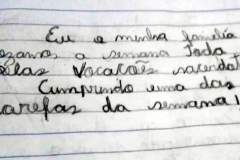 Eu e minha família
ezamos a semana toda
pelas Vocacões sacerdot
Cumprindo uma das
arefas da semana!